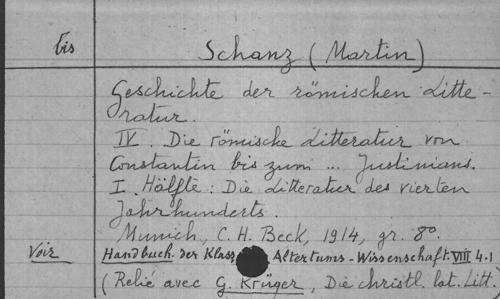 bis
Schanz (Martin)
Geschichte der römischen Litte-
ratur.
IV. Die römische Litteratur von
Constantin bis zum ... Justinians.
I. Hälfte : Die Litteratur des vierten
Jahrhunderts.
Munich, C. H. Beck, 1914, gr. 8º.
Voir Handbuch der Klass Altertums-Wissenschaft VIII 4.1
(Relié avec G. Krüger, Die christl. lat. Litt.